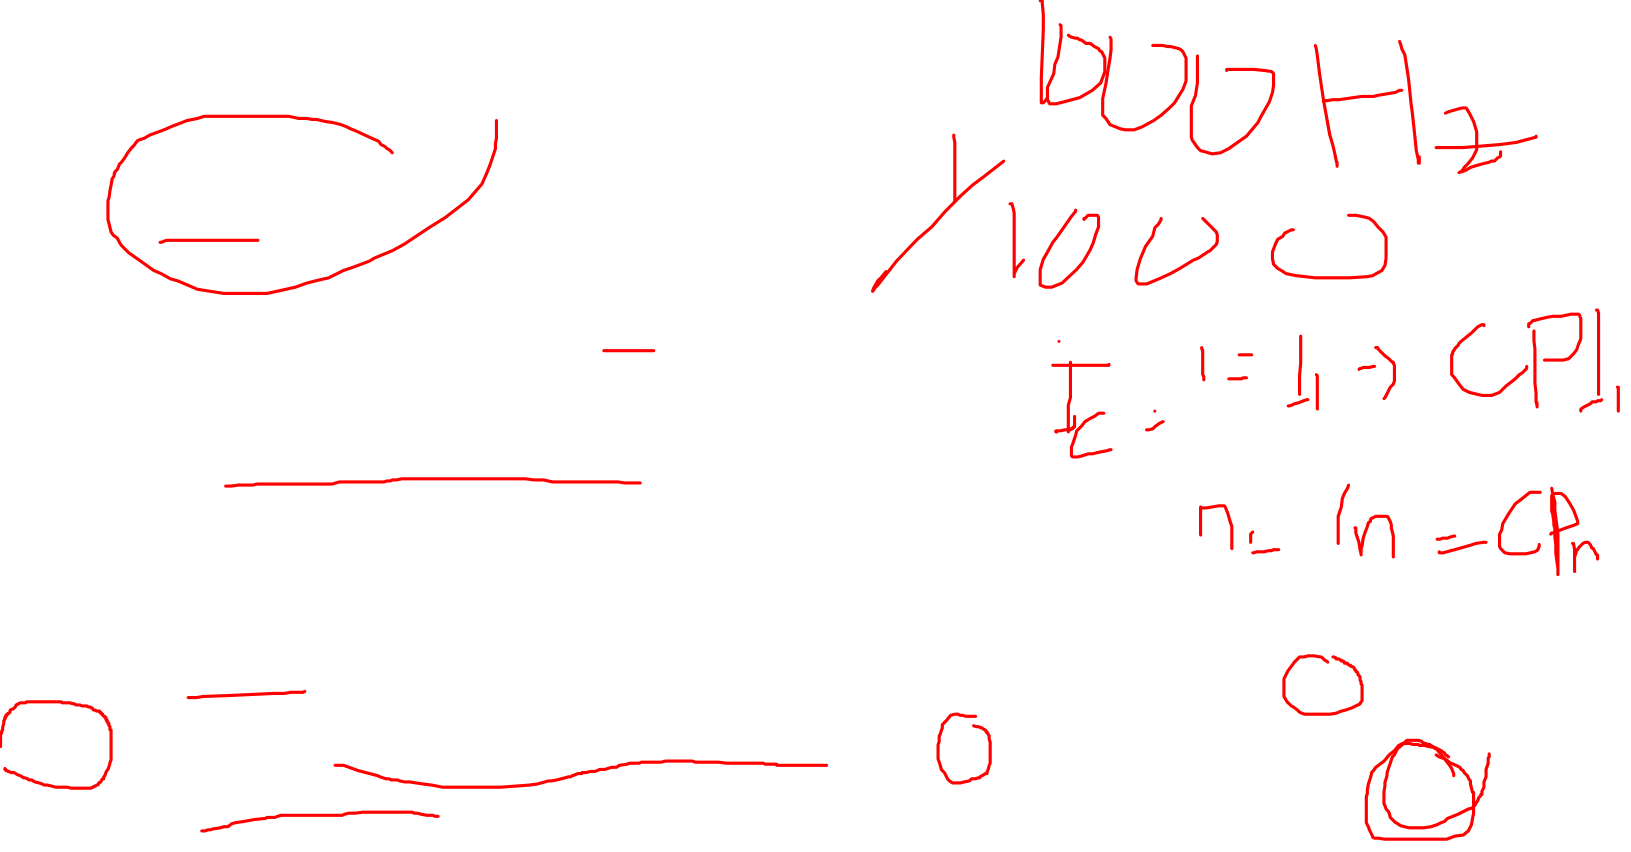 1000 Hz
1/1000
Ic: 1 = I1 → CPI1
n = In = CPn